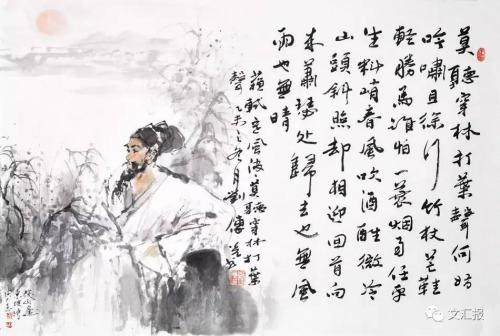 莫聽穿林打葉聲何妨
吟嘯且徐行竹杖芒鞋
輕勝馬誰怕一蓑烟雨任平
生料峭春風吹酒醒微冷
山頭斜照却相迎回首向
来蕭瑟處歸去也無風
雨也無晴
蘇軾定風波莫聽穿林打葉
聲乙未冬月劉傳
文汇报